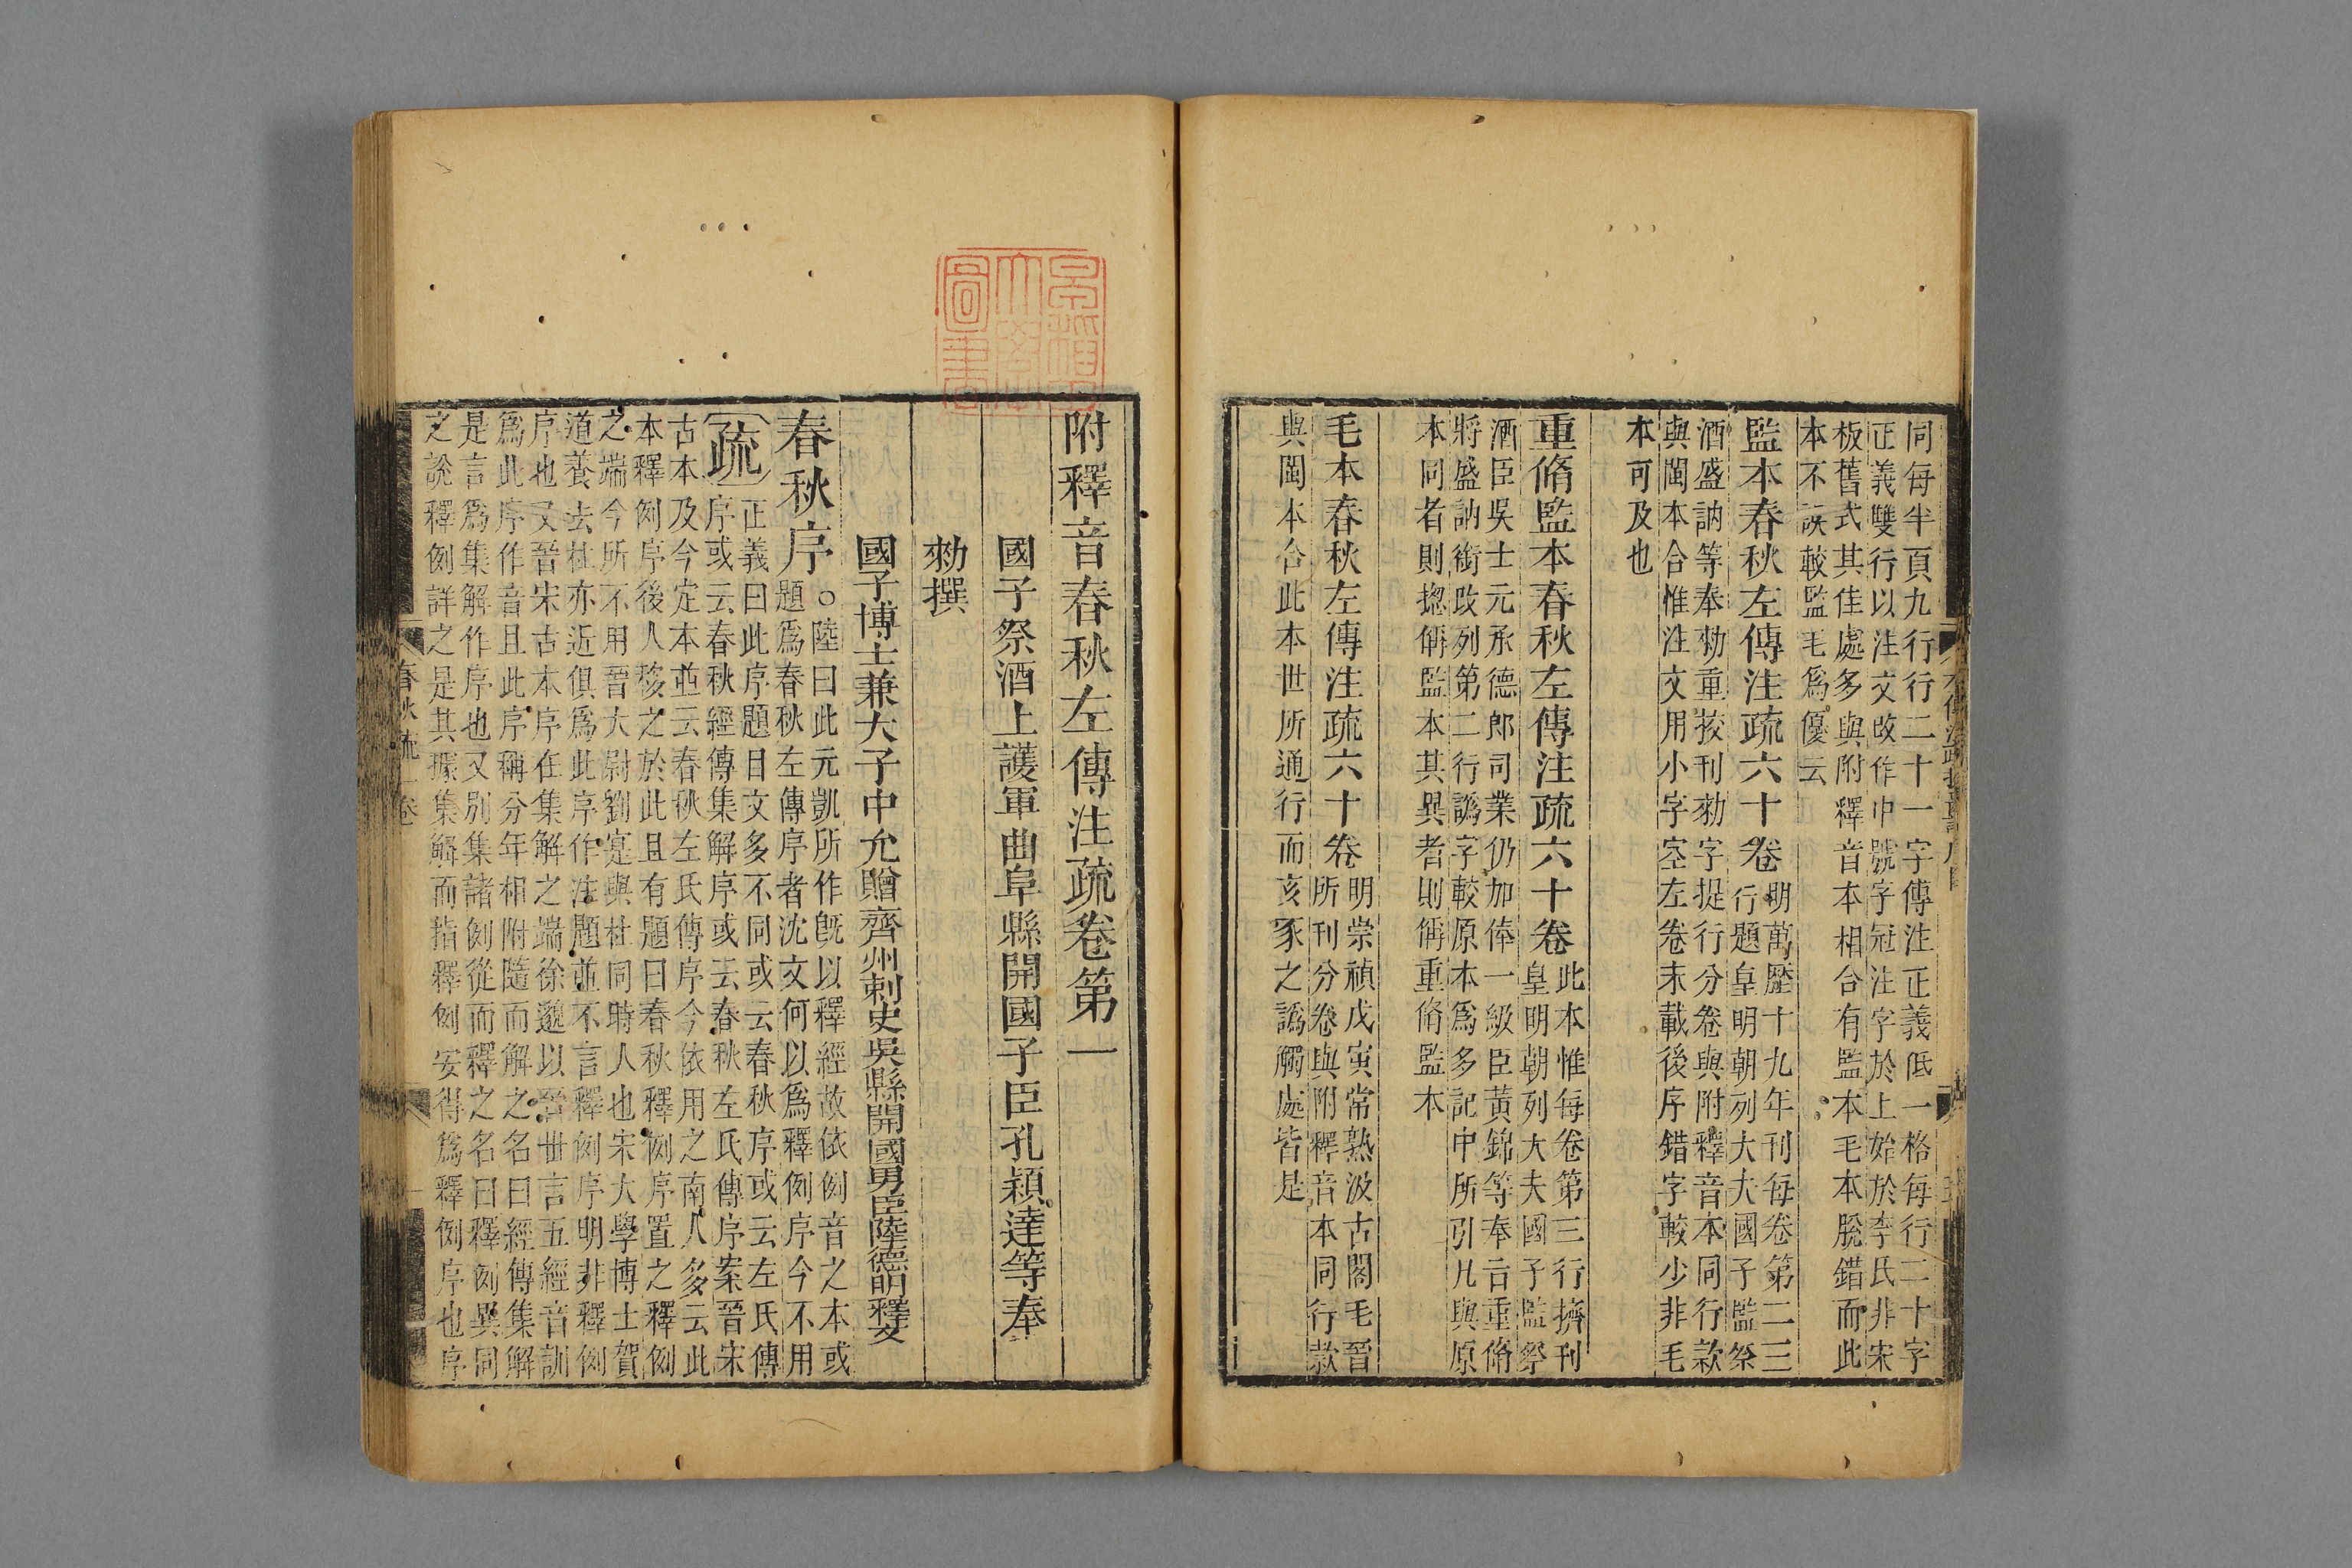 同每半頁九行行二十一字傳注正義低一格每行二十字
正義雙行以注文改作中號字冠注字於上始於李氏非宋
板舊式其佳處多與附釋音本相合有監本毛本脫錯而此
本不誤較監毛爲優云
監本春秋左傳注疏六十卷明萬歷十九年刊每卷第二三
行題皇明朝列大夫國子監祭
酒盛訥等奉勑重挍刊勑字提行分卷與附釋音本同行款
與閩本合惟注文用小字空左卷末載後序錯字較少非毛
本可及也
重脩監本春秋左傳注疏六十卷此本惟每卷第三行擠刊
皇明朝列大夫國子監祭
酒臣吳士元承德郎司業仍加俸一級臣黃錦等奉旨重脩
將盛訥銜改列第二行譌字較原本爲多記中所引凡與原
本同者則揔稱監本其異者則稱重脩監本
毛本春秋左傳注疏六十卷明崇禎戊寅常熟汲古閣毛晉
所刊分卷與附釋音本同行款
與閩本合此本世所通行而亥豕之譌觸處皆是
附釋音春秋左傳注疏卷第一
國子祭酒上護軍曲阜縣開國子臣孔穎達等奉
勑撰
國子博士兼太子中允贈齊州刺史吳縣開國男臣陸德明釋文
春秋序○陸曰此元凱所作旣以釋經故依例音之本或
題爲春秋左傳序者沈文何以爲釋例序今不用
疏正義曰此序題目文多不同或云春秋序或云左氏傳
序或云春秋經傳集解序或云春秋左氏傳序案晉宋
古本及今定本並云春秋左氏傳序今依用之南人多云此
本釋例序後人移之於此且有題曰春秋釋例序置之釋例
之端今所不用晉大尉劉寔與杜同時人也宋大學博士賀
道養去杜亦近俱爲此序作注題並不言釋例序明非釋例
序也又晉宋古本序在集解之端徐邈以晉世言五經音訓
爲此序作音且此序稱分年相附隨而解之名曰經傳集解
是言爲集解作序也又別集諸例從而釋之名曰釋例異同
之說釋例詳之是其據集解而指釋例安得爲釋例序也序
春秋疏一卷